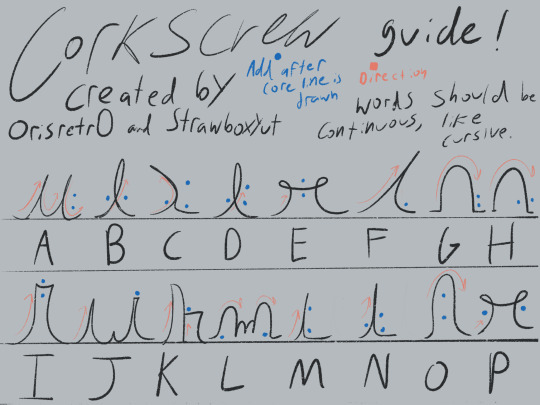 Corkscrew guide!
Add after
core line is
drawn
Direction
created by
Orisretr0 and Strawboxyut
words should be
continuous, like
cursive.
A B C D E F G H
I J K L M N O P